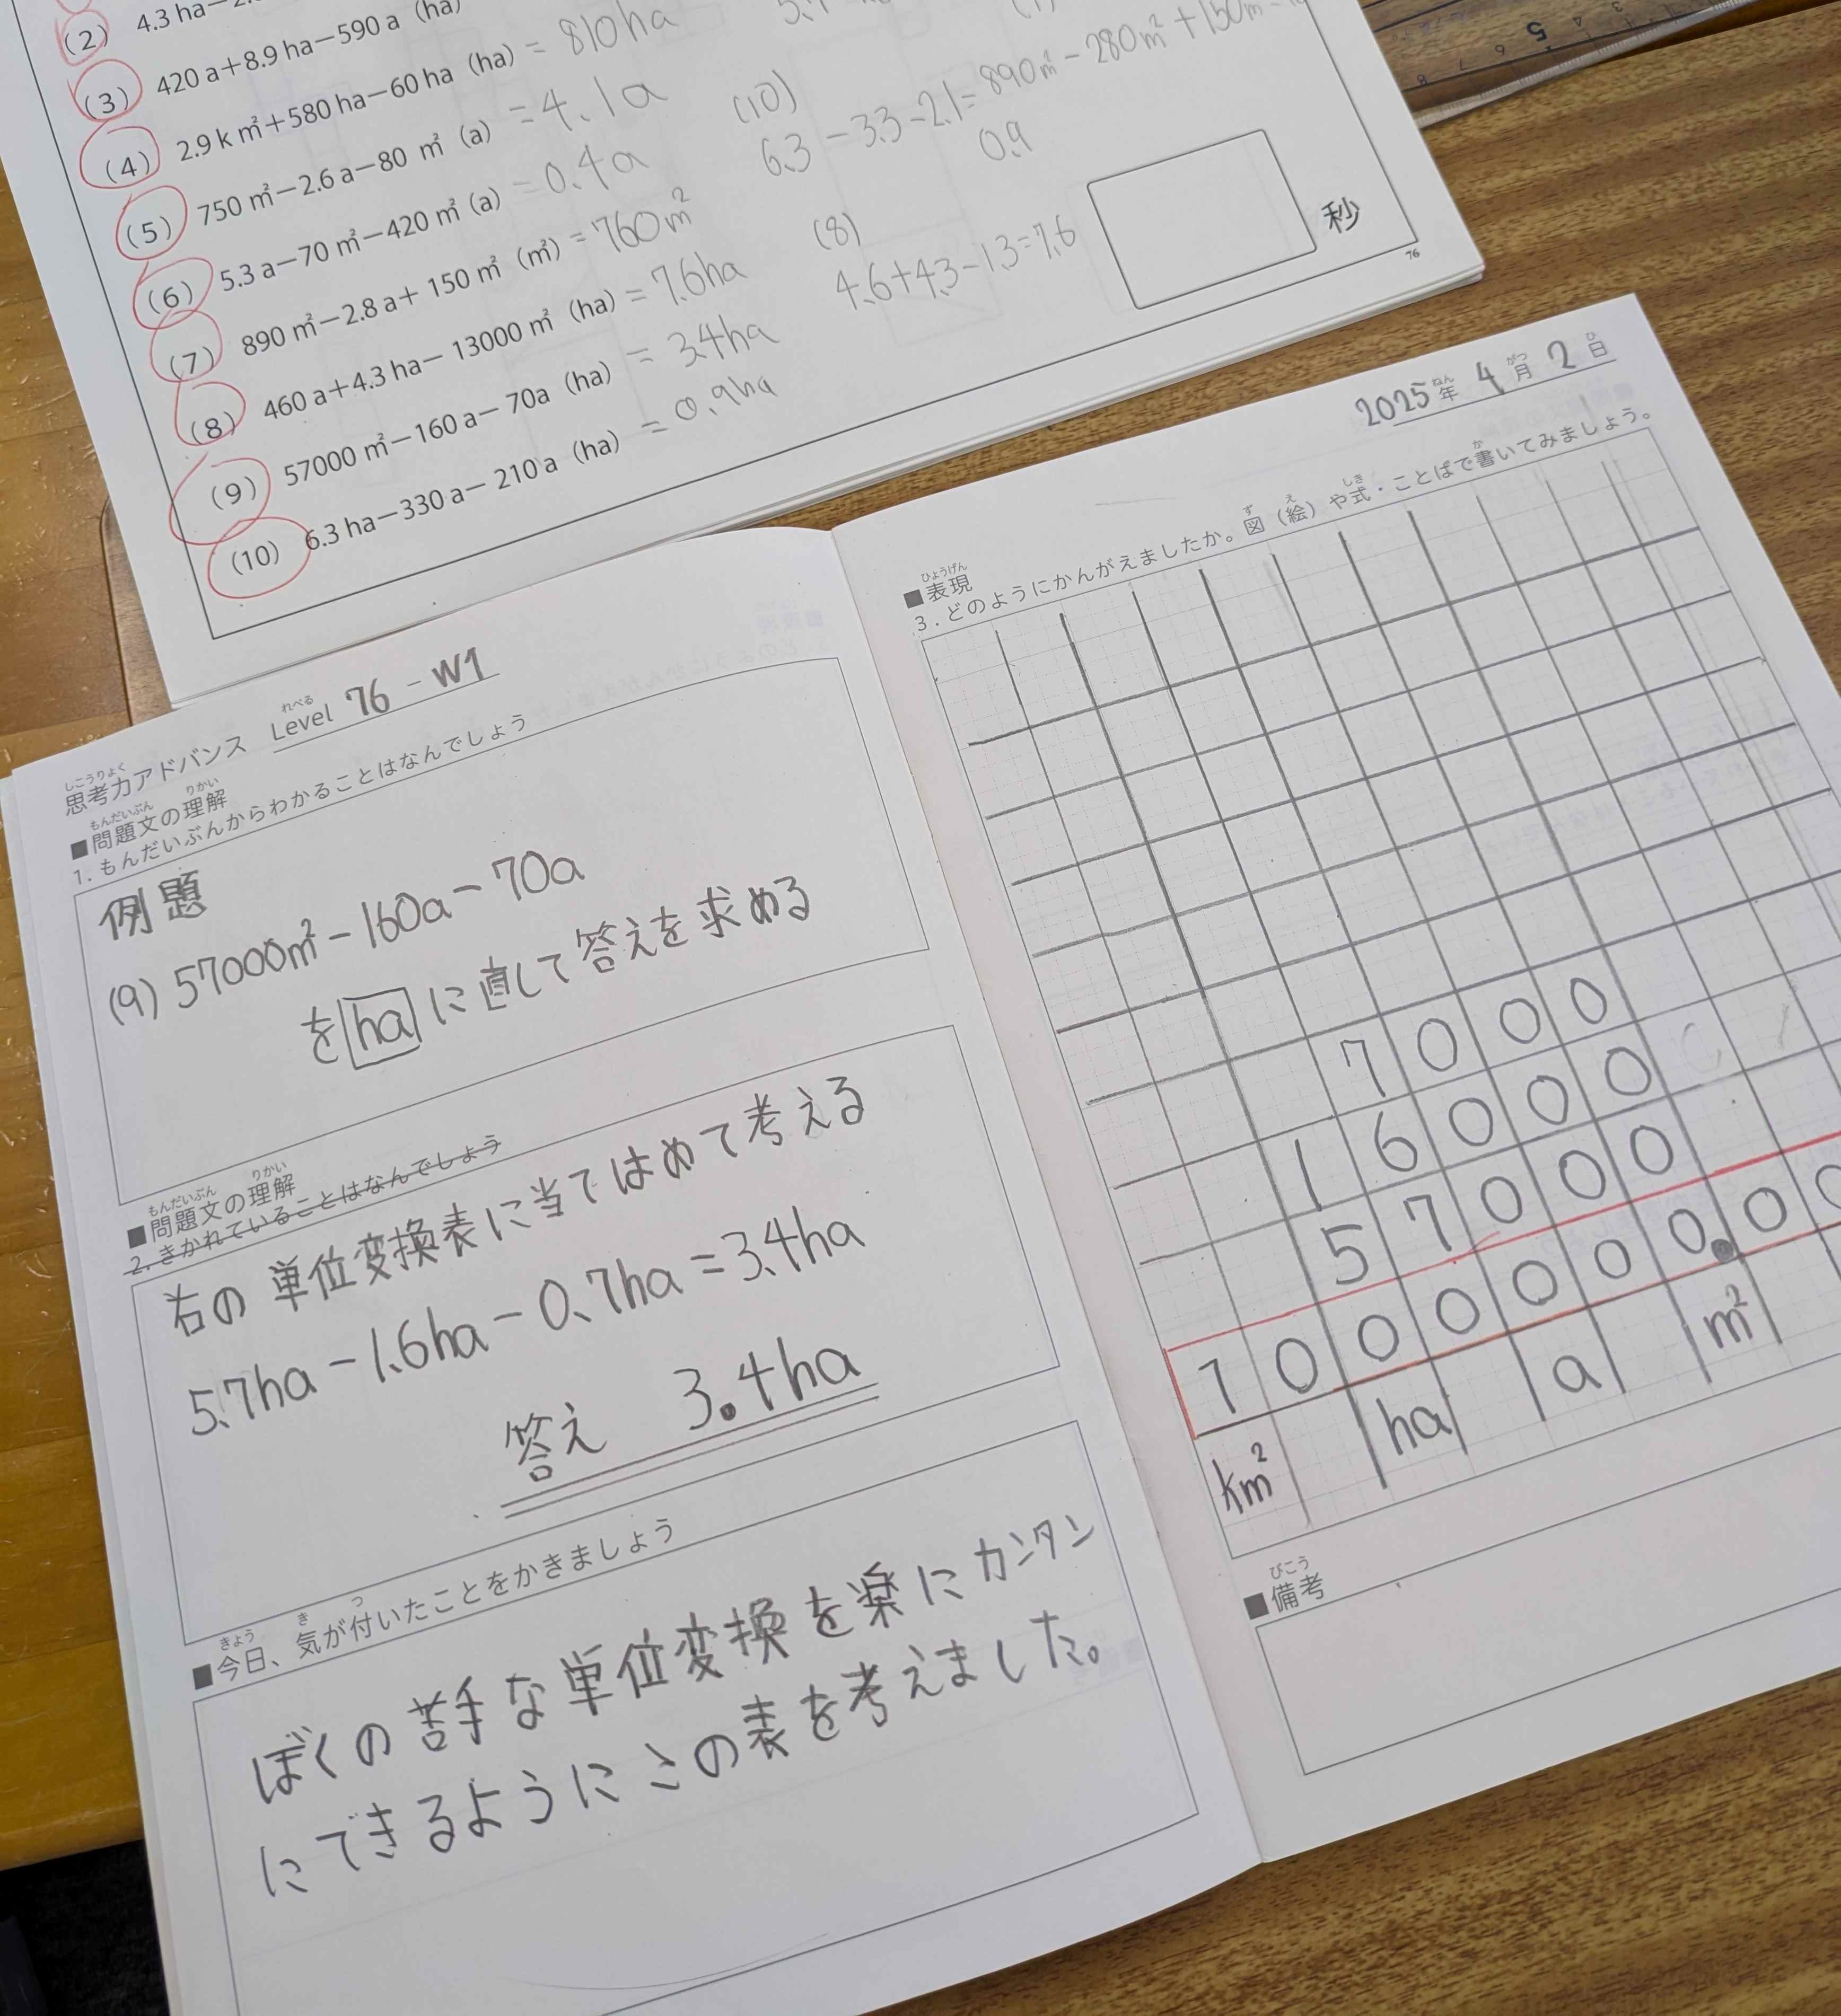 (2) 4.3 ha−2.
(3) 420 a+8.9 ha−590 a (ha)
(4) 2.9 k㎡+580 ha−60 ha (ha) = 810ha
(5) 750 ㎡−2.6 a−80 ㎡ (a) = 4.1a
(6) 5.3 a−70 ㎡−420 ㎡ (a) = 0.4a
(7) 890 ㎡−2.8 a+ 150 ㎡ (㎡) = 760m²
(8) 460 a+4.3 ha− 13000 ㎡ (ha) = 7.6ha
(9) 57000 ㎡−160 a− 70a (ha) = 3.4ha
(10) 6.3 ha−330 a− 210 a (ha) = 0.9ha
890㎡ − 280m² + 150m
(10)
6.3 − 3.3 − 2.1 =
0.9
(8)
4.6+4.3−1.3=7.6
秒
76
れべる
思考力アドバンス Level 76 - W1
しこうりょく
もんだいぶん りかい
■問題文の理解
1. もんだいぶんからわかることはなんでしょう
例題
(9) 57000m² − 160a − 70a
を ha に直して答えを求める
もんだいぶん りかい
■問題文の理解
2. きかれていることはなんでしょう
右の単位変換表に当てはめて考える
5.7ha − 1.6ha − 0.7ha = 3.4ha
答え 3.4ha
きょう き つ
■今日、気が付いたことをかきましょう
ぼくの苦手な単位変換を楽にカンタン
にできるようにこの表を考えました。
ねん がつ ひ
2025年 4月 2日
ひょうげん
■表現
ず え しき か
3. どのようにかんがえましたか。図(絵)や式・ことばで書いてみましょう。
7 0 0 0
1 6 0 0 0
5 7 0 0 0
1 0 0 0 0 0 0. 0 0
km² ha a m²
びこう
■備考